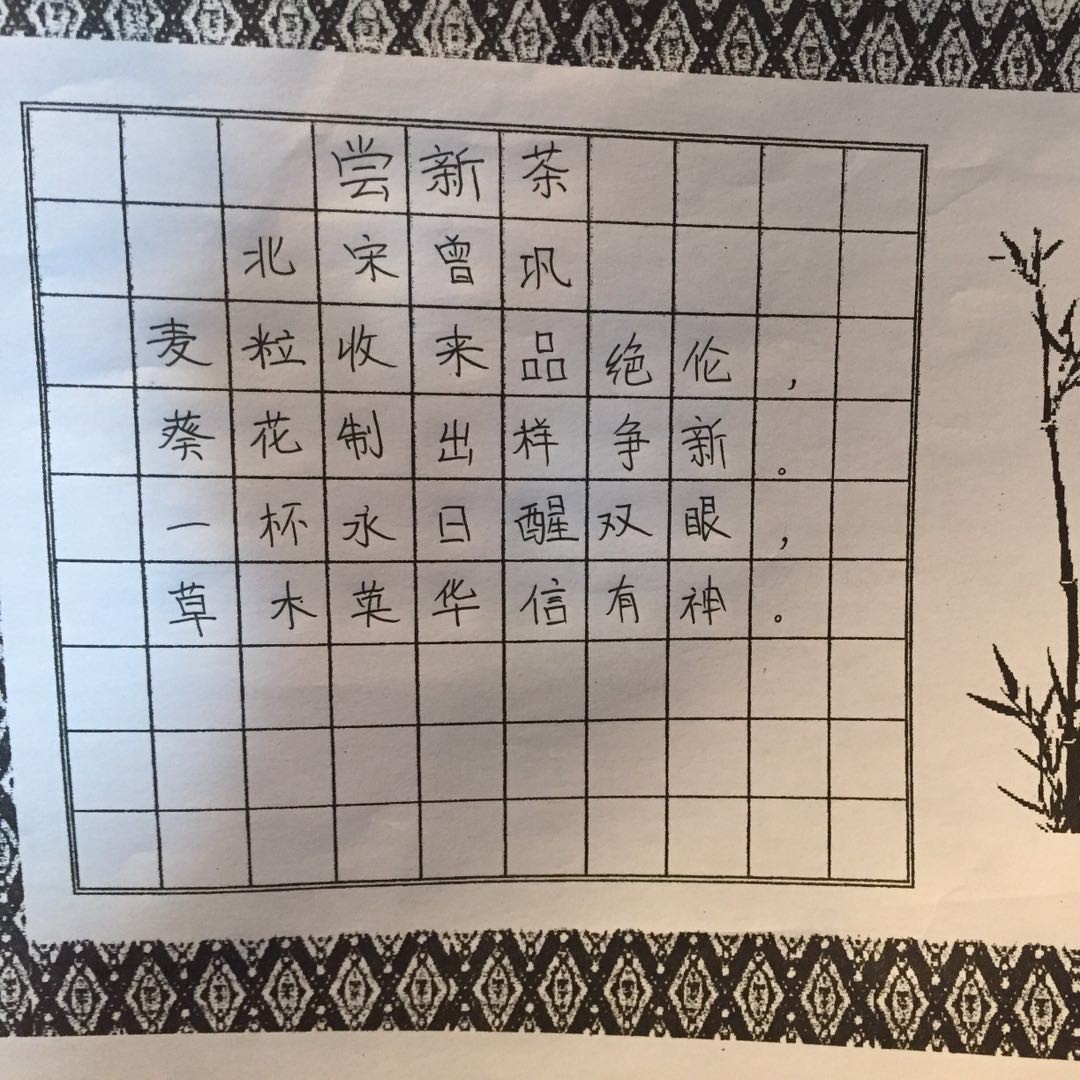 尝新茶
北宋曾巩
麦粒收来品绝伦，
葵花制出样争新。
一杯永日醒双眼，
草木英华信有神。